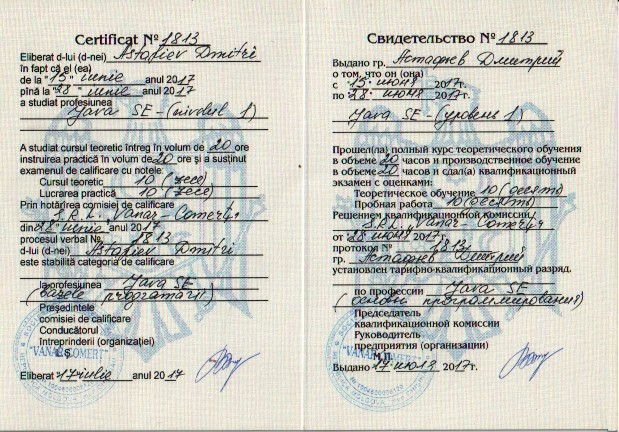 Certificat № 1813
Eliberat d-lui (d-nei) Astafiev Dmitri
în fapt că el (ea)
de la "15" iunie anul 2017
pînă la "28" iunie anul 2017
a studiat profesiunea
Java SE - (nivelul 1)
A studiat cursul teoretic întreg în volum de 20 ore
instruirea practică în volum de 20 ore şi a susţinut
examenul de calificare cu notele:
Cursul teoretic 10 (zece)
Lucrarea practică 10 (zece)
Prin hotărîrea comisiei de calificare
S.R.L. "Vanar-Comerţ"
din 28 iunie anul 2017
procesul verbal № 1813
d-lui (d-nei) Astafiev Dmitri
este stabilită categoria de calificare
la profesiunea Java SE
(bazele programării)
Preşedintele
comisiei de calificare
Conducătorul
întreprinderii (organizaţiei)
L.Ş.
"VANAR-COMERT"
Eliberat 17 iulie anul 2017
Свидетельство № 1813
Выдано гр. Астафьев Дмитрий
о том, что он (она)
с 15 июня 2017г.
по 28 июня 2017г.
Java SE - (уровень 1)
Прошел(ла) полный курс теоретического обучения
в объеме 20 часов и производственное обучение
в объеме 20 часов и сдал(а) квалификационный
экзамен с оценками:
Теоретическое обучение 10 (десять)
Пробная работа 10 (десять)
Решением квалификационной комиссии
S.R.L. "Vanar-Comerţ"
от 28 июня 2017г.
протокол № 1813
гр. Астафьев Дмитрий
установлен тарифно-квалификационный разряд.
по профессии Java SE
(основы программирования)
Председатель
квалификационной комиссии
Руководитель
предприятия (организации)
М.П.
Выдано 17 июля 2017г.